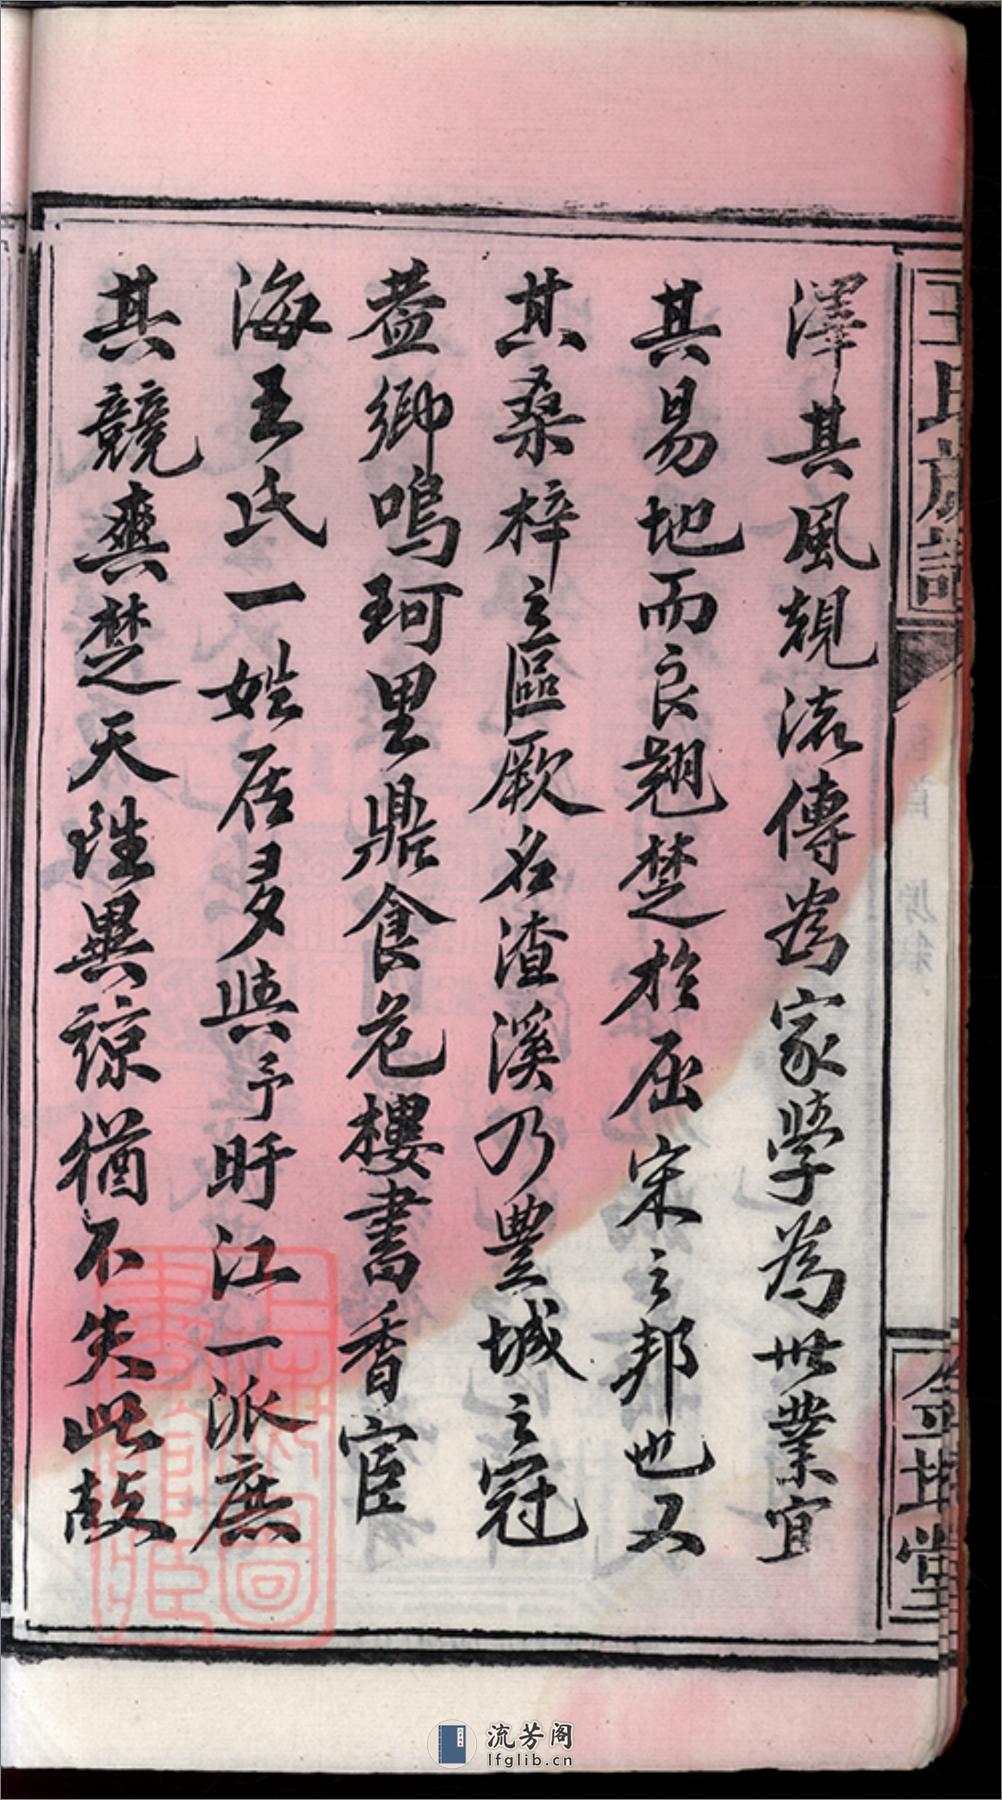 王氏族譜
澤其風規流傳為家學為世業宜
其易地而良翹楚於屈宋之邦也又
其桑梓之區厥名渣溪乃豐城之冠
蓋鄉鳴珂里鼎食危樓書香宦
海王氏一姓居多與予盱江一派庶
其競爽楚天性異諒猶不失此故
三坪堂
上海圖書館藏
流芳阁
lfglib.cn